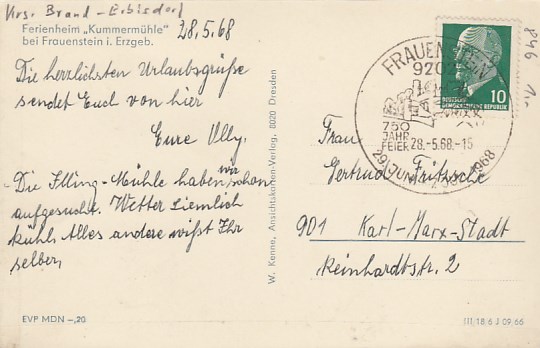 Krs. Brand-Erbisdorf
Ferienheim „Kummermühle"
bei Frauenstein i. Erzgeb.
28.5.68
Die herrlichsten Urlaubsgrüße
sendet Euch von hier
Eure Ully.
Die Illing-Mühle haben wir schon
aufgesucht. Wetter ziemlich
kühl. Alles andere wißt Ihr
selber.
EVP MDN –,20
W. Kenne, Ansichtskarten-Verlag, 8020 Dresden
FRAUENSTEIN
920
750
JAHR
FEIER 28.-5.68.-15
29. JUNI - 1968
10
DEUTSCHE
DEMOKRATISCHE REPUBLIK
846
Frau
Gertrud Fritzsche
901 Karl-Marx-Stadt
Reinhardtstr. 2
III 18 6 J 09 66